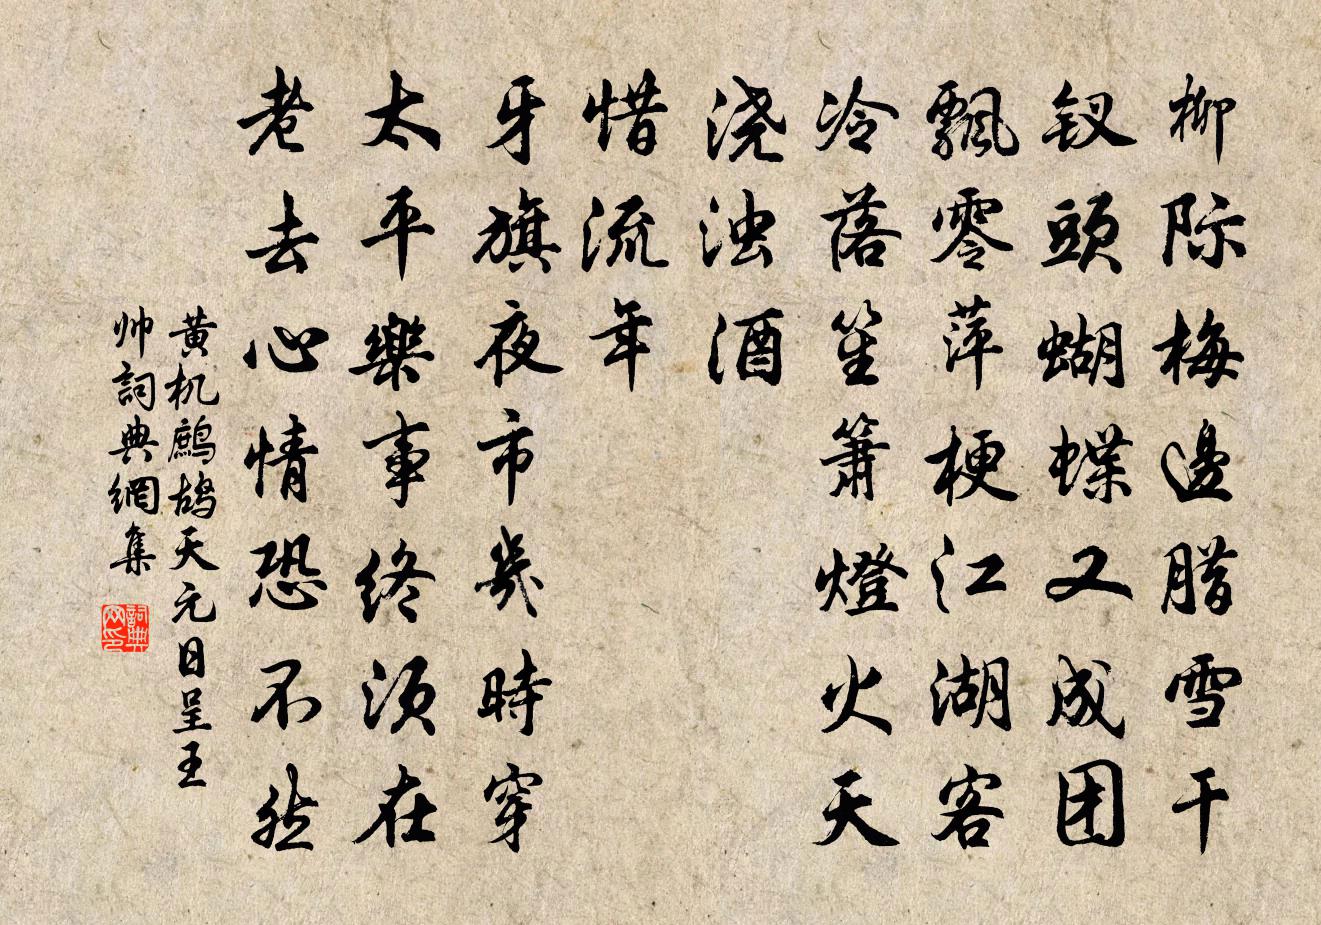 柳际梅邊腊雪干
钗頭蝴蝶又成团
飄零萍梗江湖客
冷落笙簫燈火天
浇浊酒
惜流年
牙旗夜市幾時穿
太平樂事终须在
老去心情恐不然
黄机鷓鸪天元日呈王
帅詞典網集
詞典网印